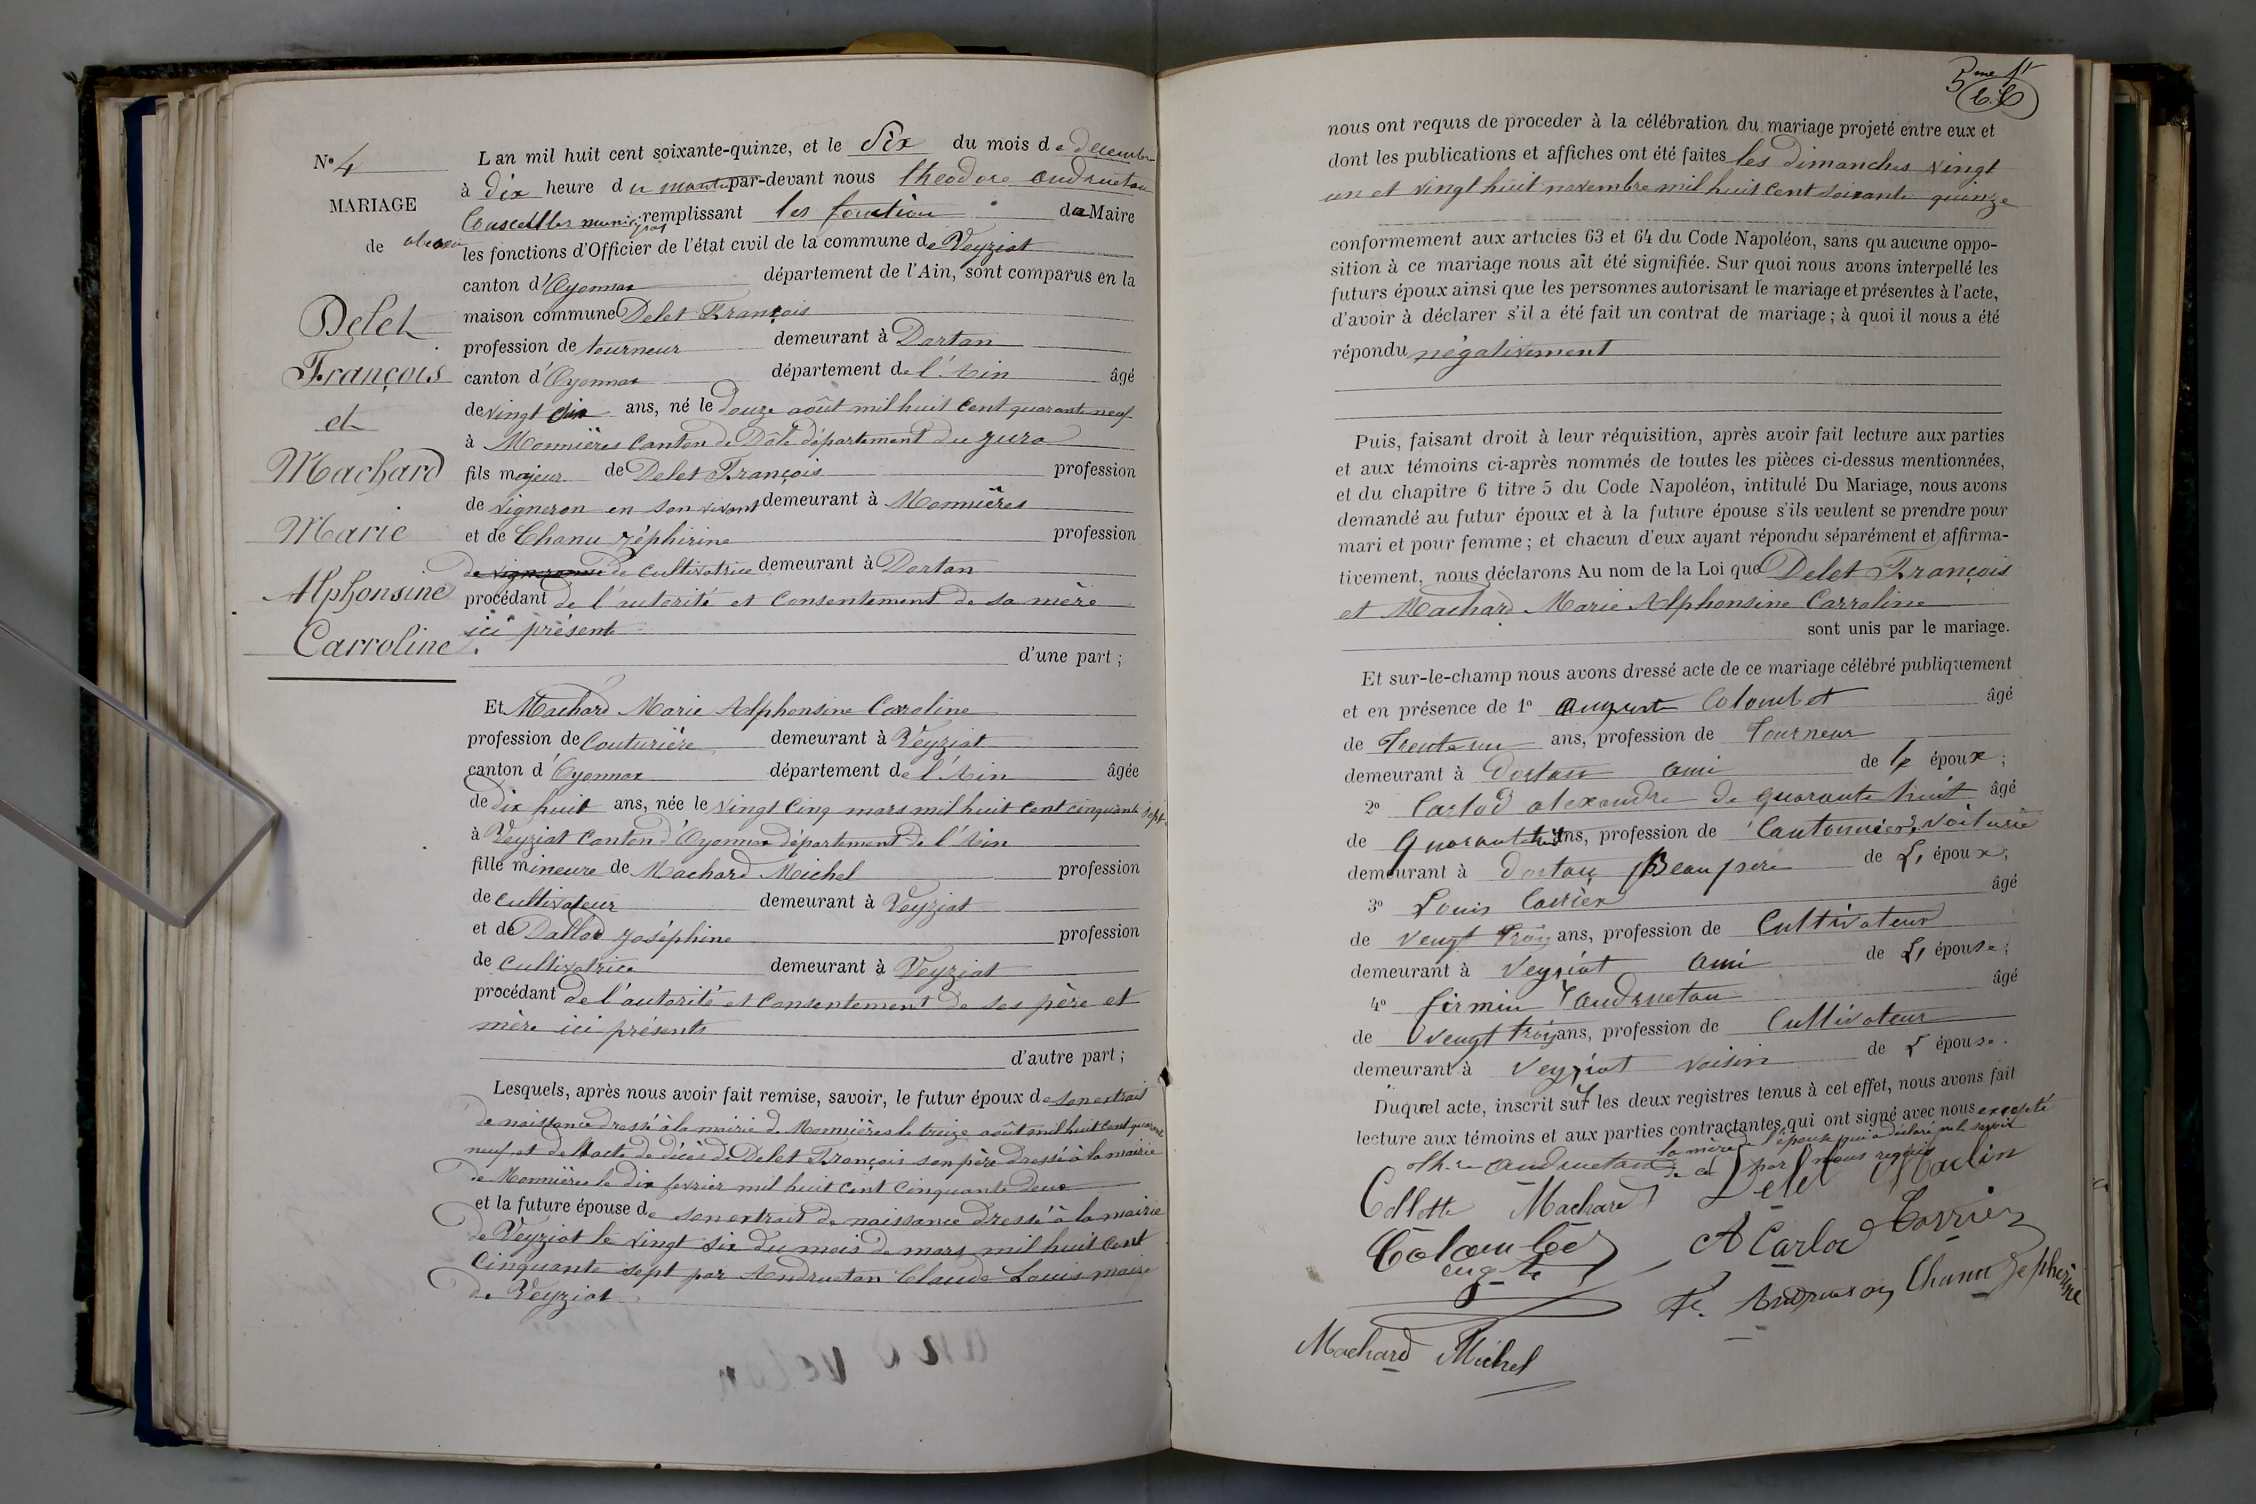 N° 4
MARIAGE
de
Delet
François
et
Machard
Marie
Alphonsine
Carroline
L'an mil huit cent soixante-quinze, et le Six du mois de décembre
à dix heure du matin par-devant nous théodore andruetan
Conseiller municipal remplissant les fonction de Maire
les fonctions d'Officier de l'état civil de la commune de Veyziat
canton d'Oyonnax département de l'Ain, sont comparus en la
maison commune Delet François
profession de tourneur demeurant à Dortan
canton d'Oyonnax département de l'Ain âgé
de vingt six ans, né le douze août mil huit cent quarante neuf
à Monnières Canton de Dôle département du Jura
fils majeur de Delet François profession
de vigneron en son vivant demeurant à Monnières
et de Chanu Zéphirine profession
de vigneronne de cultivatrice demeurant à Dortan
procédant de l'autorité et consentement de sa mère
ici présente
d'une part ;
Et Machard Marie Alphonsine Carroline
profession de Couturière demeurant à Veyziat
canton d'Oyonnax département de l'Ain âgée
de dix huit ans, née le vingt cinq mars mil huit cent cinquante sept
à Veyziat Canton d'Oyonnax département de l'Ain
fille mineure de Machard Michel profession
de cultivateur demeurant à Veyziat
et de Dallod Joséphine profession
de cultivatrice demeurant à Veyziat
procédant de l'autorité et consentement de ses père et
mère ici présents
d'autre part ;
Lesquels, après nous avoir fait remise, savoir, le futur époux de son extrait
de naissance dressé à la mairie de Monnières le treize août mil huit cent quarante
neuf et de l'acte de décès de Delet François son père dressé à la mairie
de Monnières le dix fevrier mil huit cent cinquante deux
et la future épouse de son extrait de naissance dressé à la mairie
de Veyziat le vingt six du mois de mars mil huit cent
cinquante sept par Andruetan Claude Louis maire
de Veyziat
5me ft
nous ont requis de proceder à la célébration du mariage projeté entre eux et
dont les publications et affiches ont été faites les dimanches vingt
un et vingt huit novembre mil huit cent soixante quinze
conformement aux articles 63 et 64 du Code Napoléon, sans qu'aucune oppo-
sition à ce mariage nous ait été signifiée. Sur quoi nous avons interpellé les
futurs époux ainsi que les personnes autorisant le mariage et présentes à l'acte,
d'avoir à déclarer s'il a été fait un contrat de mariage ; à quoi il nous a été
répondu négativement
Puis, faisant droit à leur réquisition, après avoir fait lecture aux parties
et aux témoins ci-après nommés de toutes les pièces ci-dessus mentionnées,
et du chapitre 6 titre 5 du Code Napoléon, intitulé Du Mariage, nous avons
demandé au futur époux et à la future épouse s'ils veulent se prendre pour
mari et pour femme ; et chacun d'eux ayant répondu séparément et affirma-
tivement, nous déclarons Au nom de la Loi que Delet François
et Machard Marie Alphonsine Carroline
sont unis par le mariage.
Et sur-le-champ nous avons dressé acte de ce mariage célébré publiquement
et en présence de 1° august Colombet âgé
de Trente un ans, profession de Tourneur
demeurant à dortan ami de le époux ;
2° Carlod alexandre de quarante huit âgé
de quarante huit ans, profession de Cantonnier Voiturié
demeurant à dortan Beau père de L, époux ;
3° Louis Carrier âgé
de veugt trois ans, profession de Cultivateur
demeurant à veyziat ami de L, épouse ;
4° firmin andruetan âgé
de veugt trois ans, profession de Cultivateur
demeurant à veyziat voisin de L épouse.
Duquel acte, inscrit sur les deux registres tenus à cet effet, nous avons fait
lecture aux témoins et aux parties contractantes qui ont signé avec nous excepté
la mère de l'épouse qui a déclaré ne le savoir
de ce par nous requis
andruetan
Collotte Machard Delet
Colombet A Carlod Carrier
Andruetan Chanu Zephirine
Machard Michel